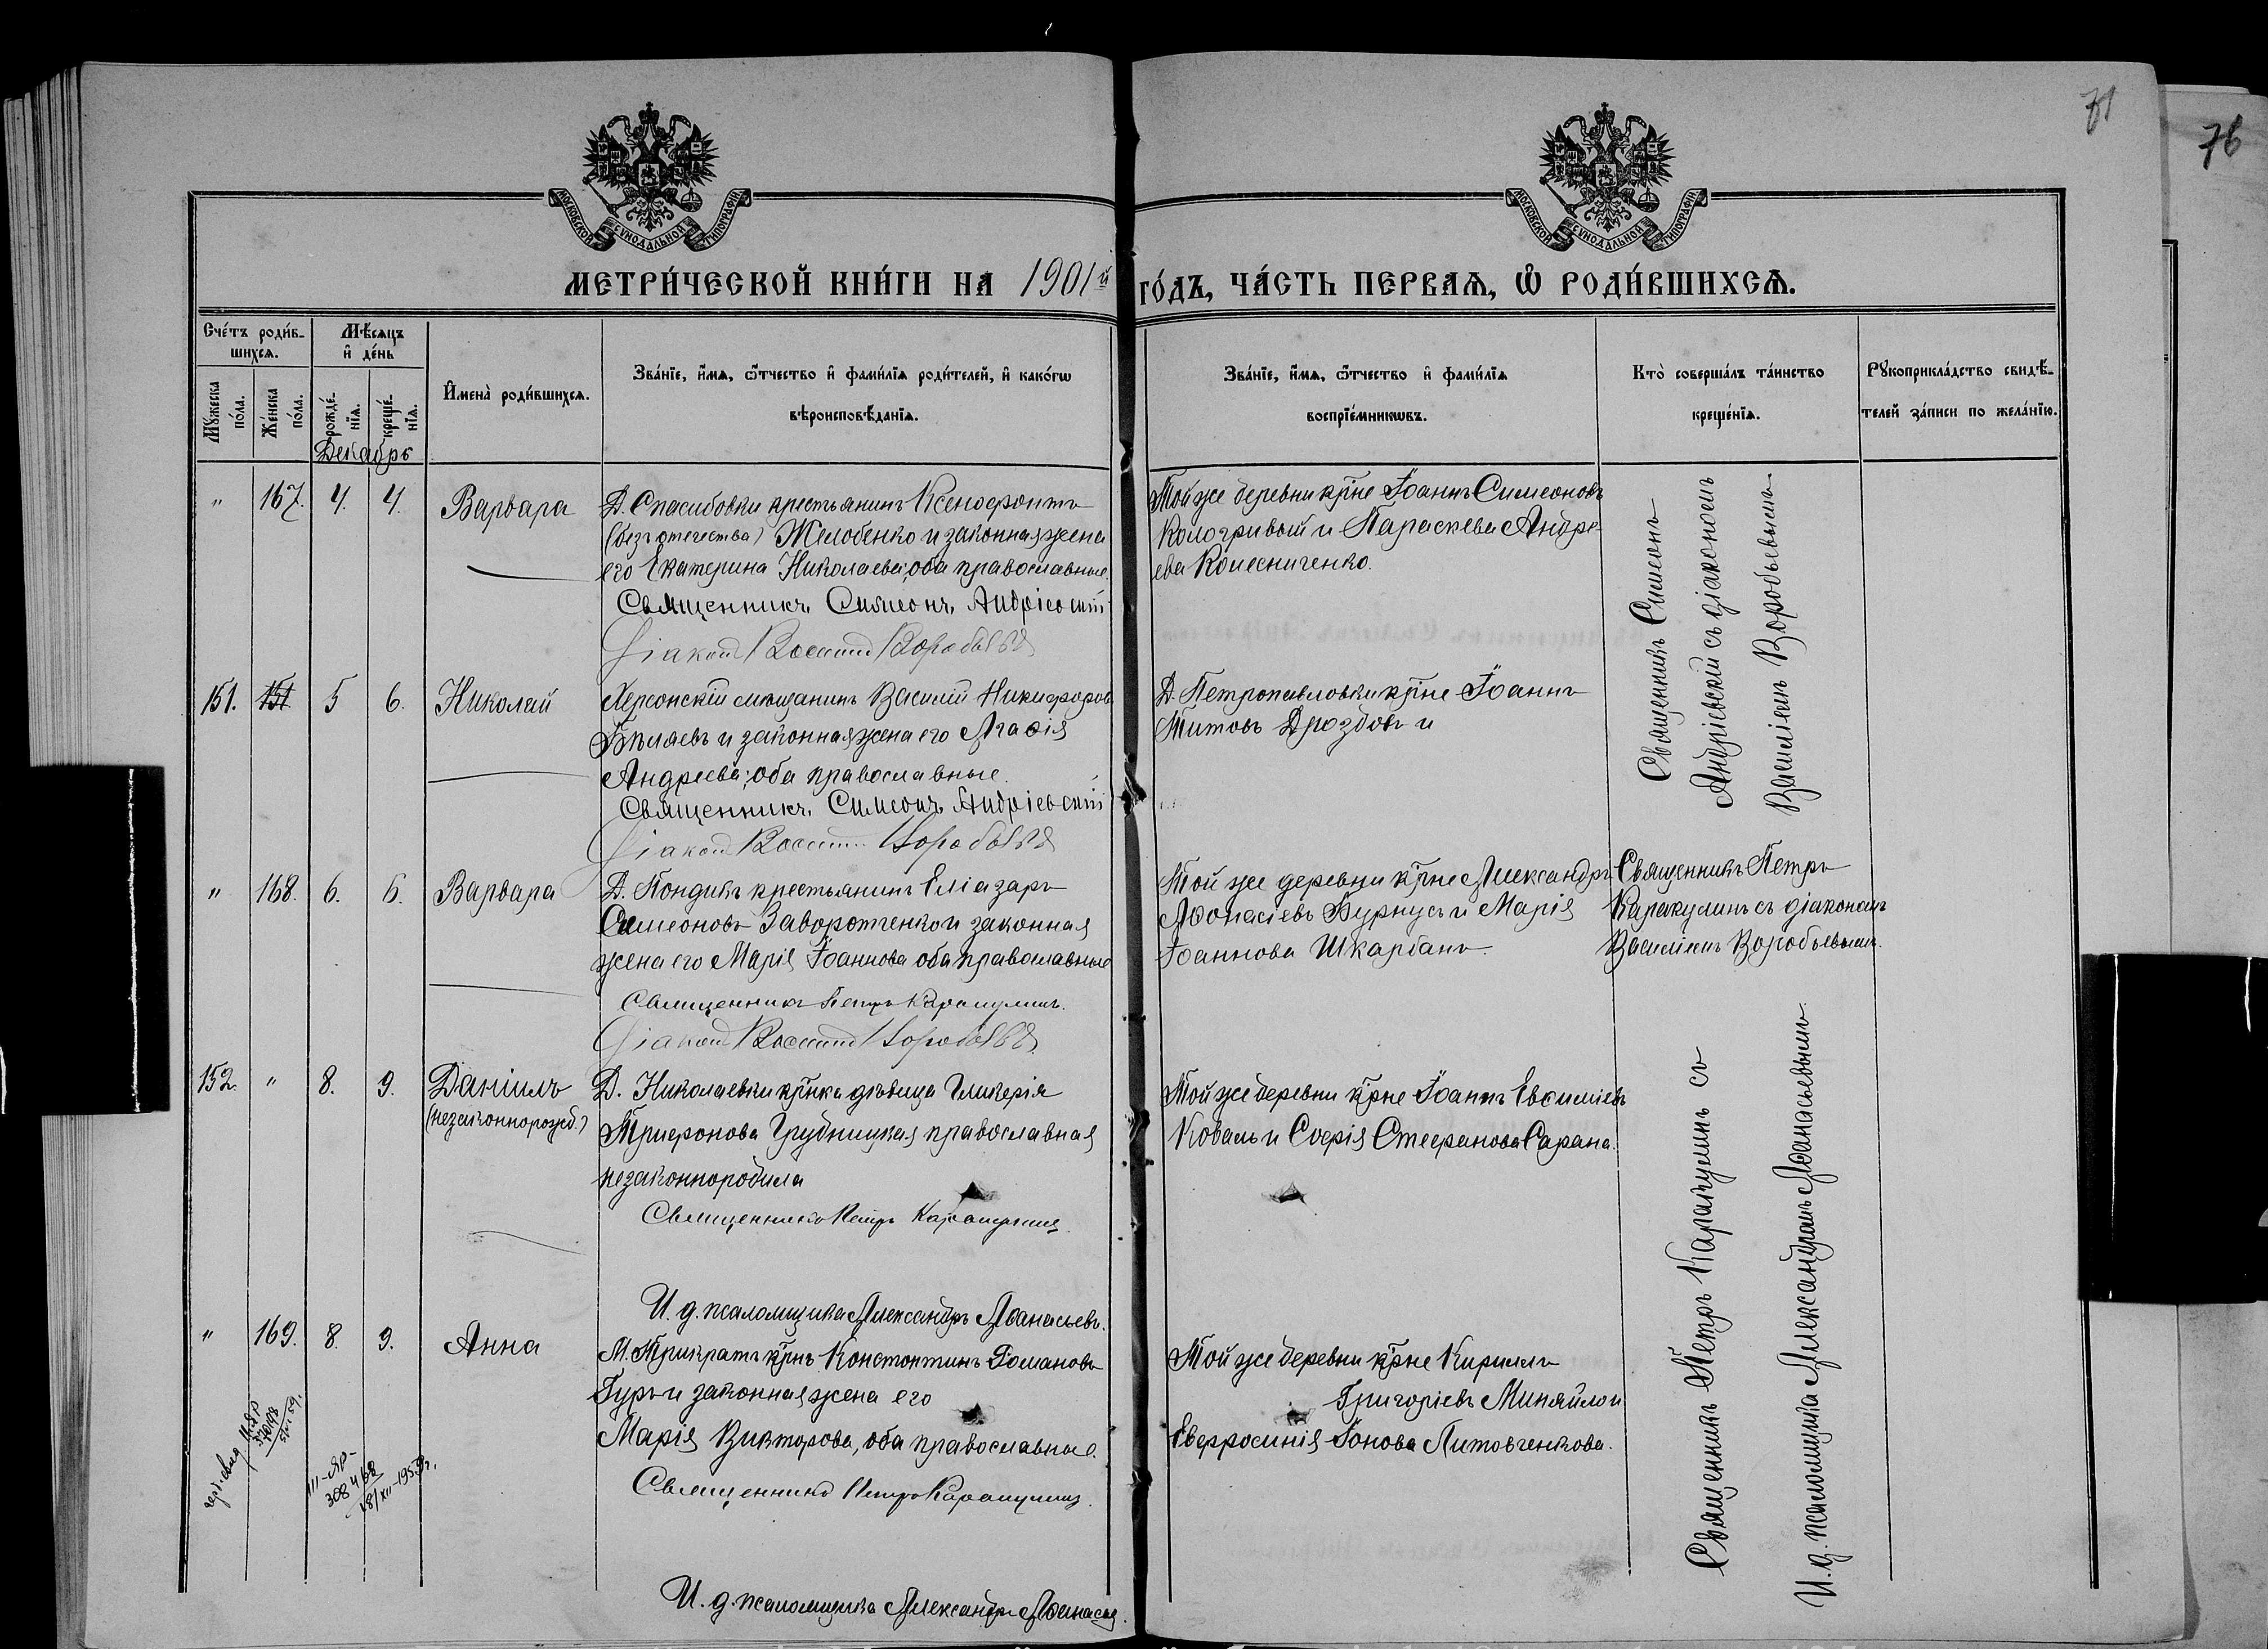 71
76
МОСКОВСКОЙ СѴНОДАЛЬНОЙ ТИПОГРАФІИ.
МОСКОВСКОЙ СѴНОДАЛЬНОЙ ТИПОГРАФІИ.
МЕТРИ́ЧЕСКОЙ КНИ́ГИ НА 1901й ГО́ДЪ, ЧА́СТЬ ПЕРВАѦ, Ѡ РОДИ́ВШИХСѦ.
Сче́тъ роди́в-
шихсѧ.
Мꙋжеска по́ла.
Же́нска по́ла.
Мѣ́сѧцъ
и҆ де́нь
рожде́-
нїѧ.
креще́-
нїѧ.
Декабрь
И҆мена̀ роди́вшихсѧ.
Зва́нїе, и҆́мѧ, ѻ҆́тчество и҆ фами́лїѧ роди́телей, и҆ како́гѡ
вѣроисповѣ́данїѧ.
Зва́нїе, и҆́мѧ, ѻ҆́тчество и҆ фами́лїѧ
воспрїе́мникѡвъ.
Кто̀ соверша́лъ та́инство
креще́нїѧ.
Рꙋкоприкла́дство свидѣ́-
телей за́писи по жела́нїю.
" 167. 4. 4. Варвара
Д. Спасибовки крестьянинъ Ксенофонтъ
(безъ отечества) Желобенко и законная жена
его Екатерина Николаева; оба православные.
Священникъ Симеонъ Андріевскій
Діаконъ Василій Воробьевъ
Той же деревни кр̃не Іоаннъ Симеоновъ
Кологривый и Параскева Андре-
ева Колесниченко.
Священникъ Симеонъ
Андріевскій съ діакономъ
Василіемъ Воробьевымъ
151. 151 5 6. Николай
Херсонскій мѣщанинъ Василій Никифоровъ
Бѣляевъ и законная жена его Агаѳія
Андреева; оба православные.
Священникъ Симеонъ Андріевскій
Діаконъ Василій Воробьевъ
Д. Петропавловки кр̃не Іоаннъ
Титовъ Дроздовъ и
" 168. 6. 6. Варвара
Д. Пондикъ крестьянинъ Еліазаръ
Симеоновъ Заворотченко и законная
жена его Марія Іоаннова оба православные
Священникъ Петръ Каракулинъ.
Діаконъ Василій Воробьевъ
Той же деревни кр̃не Александръ
Аѳонасіевъ Бурнусъ и Марія
Іоаннова Шкарбанъ.
Священникъ Петръ
Каракулинъ съ діакономъ
Василіемъ Воробьевымъ.
152. " 8. 9. Даніилъ
(незаконнорожд.)
Д. Николаевки кр̃нка дѣвица Гликерія
Трифонова Грубницкая православная
незаконнородила
Священникъ Петръ Каракулинъ.
И. д. псаломщика Александръ Аѳанасьевъ.
Той же деревни кр̃не Іоаннъ Евѳиміевъ
Коваль и Софія Стефанова Сарана.
Священникъ Петръ Каракулинъ съ
И. д. псаломщика Александромъ Аѳанасьевымъ.
" 169. 8. 9. Анна
М. Трикратъ кр̃нъ Константинъ Романовъ
Гуръ и законная жена его
Марія Викторова, оба православные.
Священникъ Петръ Каракулинъ.
И. д. псаломщика Александръ Аѳанасьев.
Той же деревни кр̃не Кириллъ
Григоріевъ Миняйло и
Евфросинія Іонова Литовченкова.
III-ЯР-